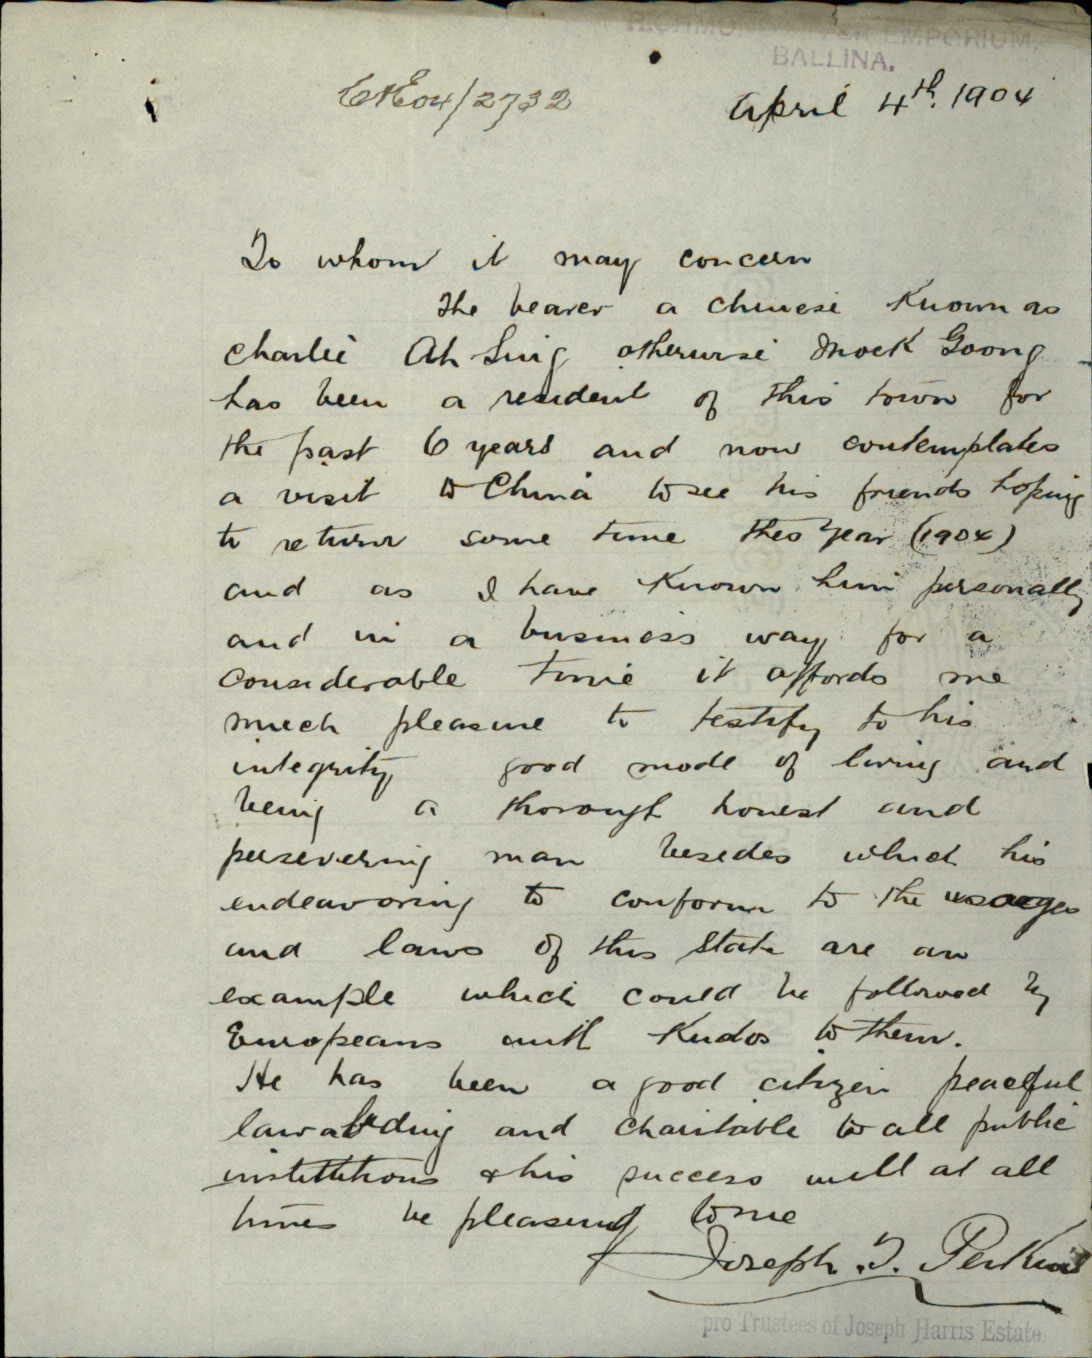 RICHMOND RIVER EMPORIUM,
BALLINA.
C&E04/2732
April 4th. 1904
To whom it may concern
The bearer a Chinese Known as
Charlie Ah Sing otherwise Mock Goong
has been a resident of this town for
the past 6 years and now contemplates
a visit to China to see his friends hoping
to return some time this Year (1904)
and as I have Known him personally
and in a business way for a
considerable time it affords me
much pleasure to testify to his
integrity good mode of living and
being a thorough honest and
persevering man besides which his
endeavoring to conform to the usages
and laws of this State are an
example which could be followed by
Europeans with Kudos to them.
He has been a good citizen peaceful
lawabiding and charitable to all public
institutions & his success will at all
times be pleasing to me
Joseph T. Perkins
pro Trustees of Joseph Harris Estate